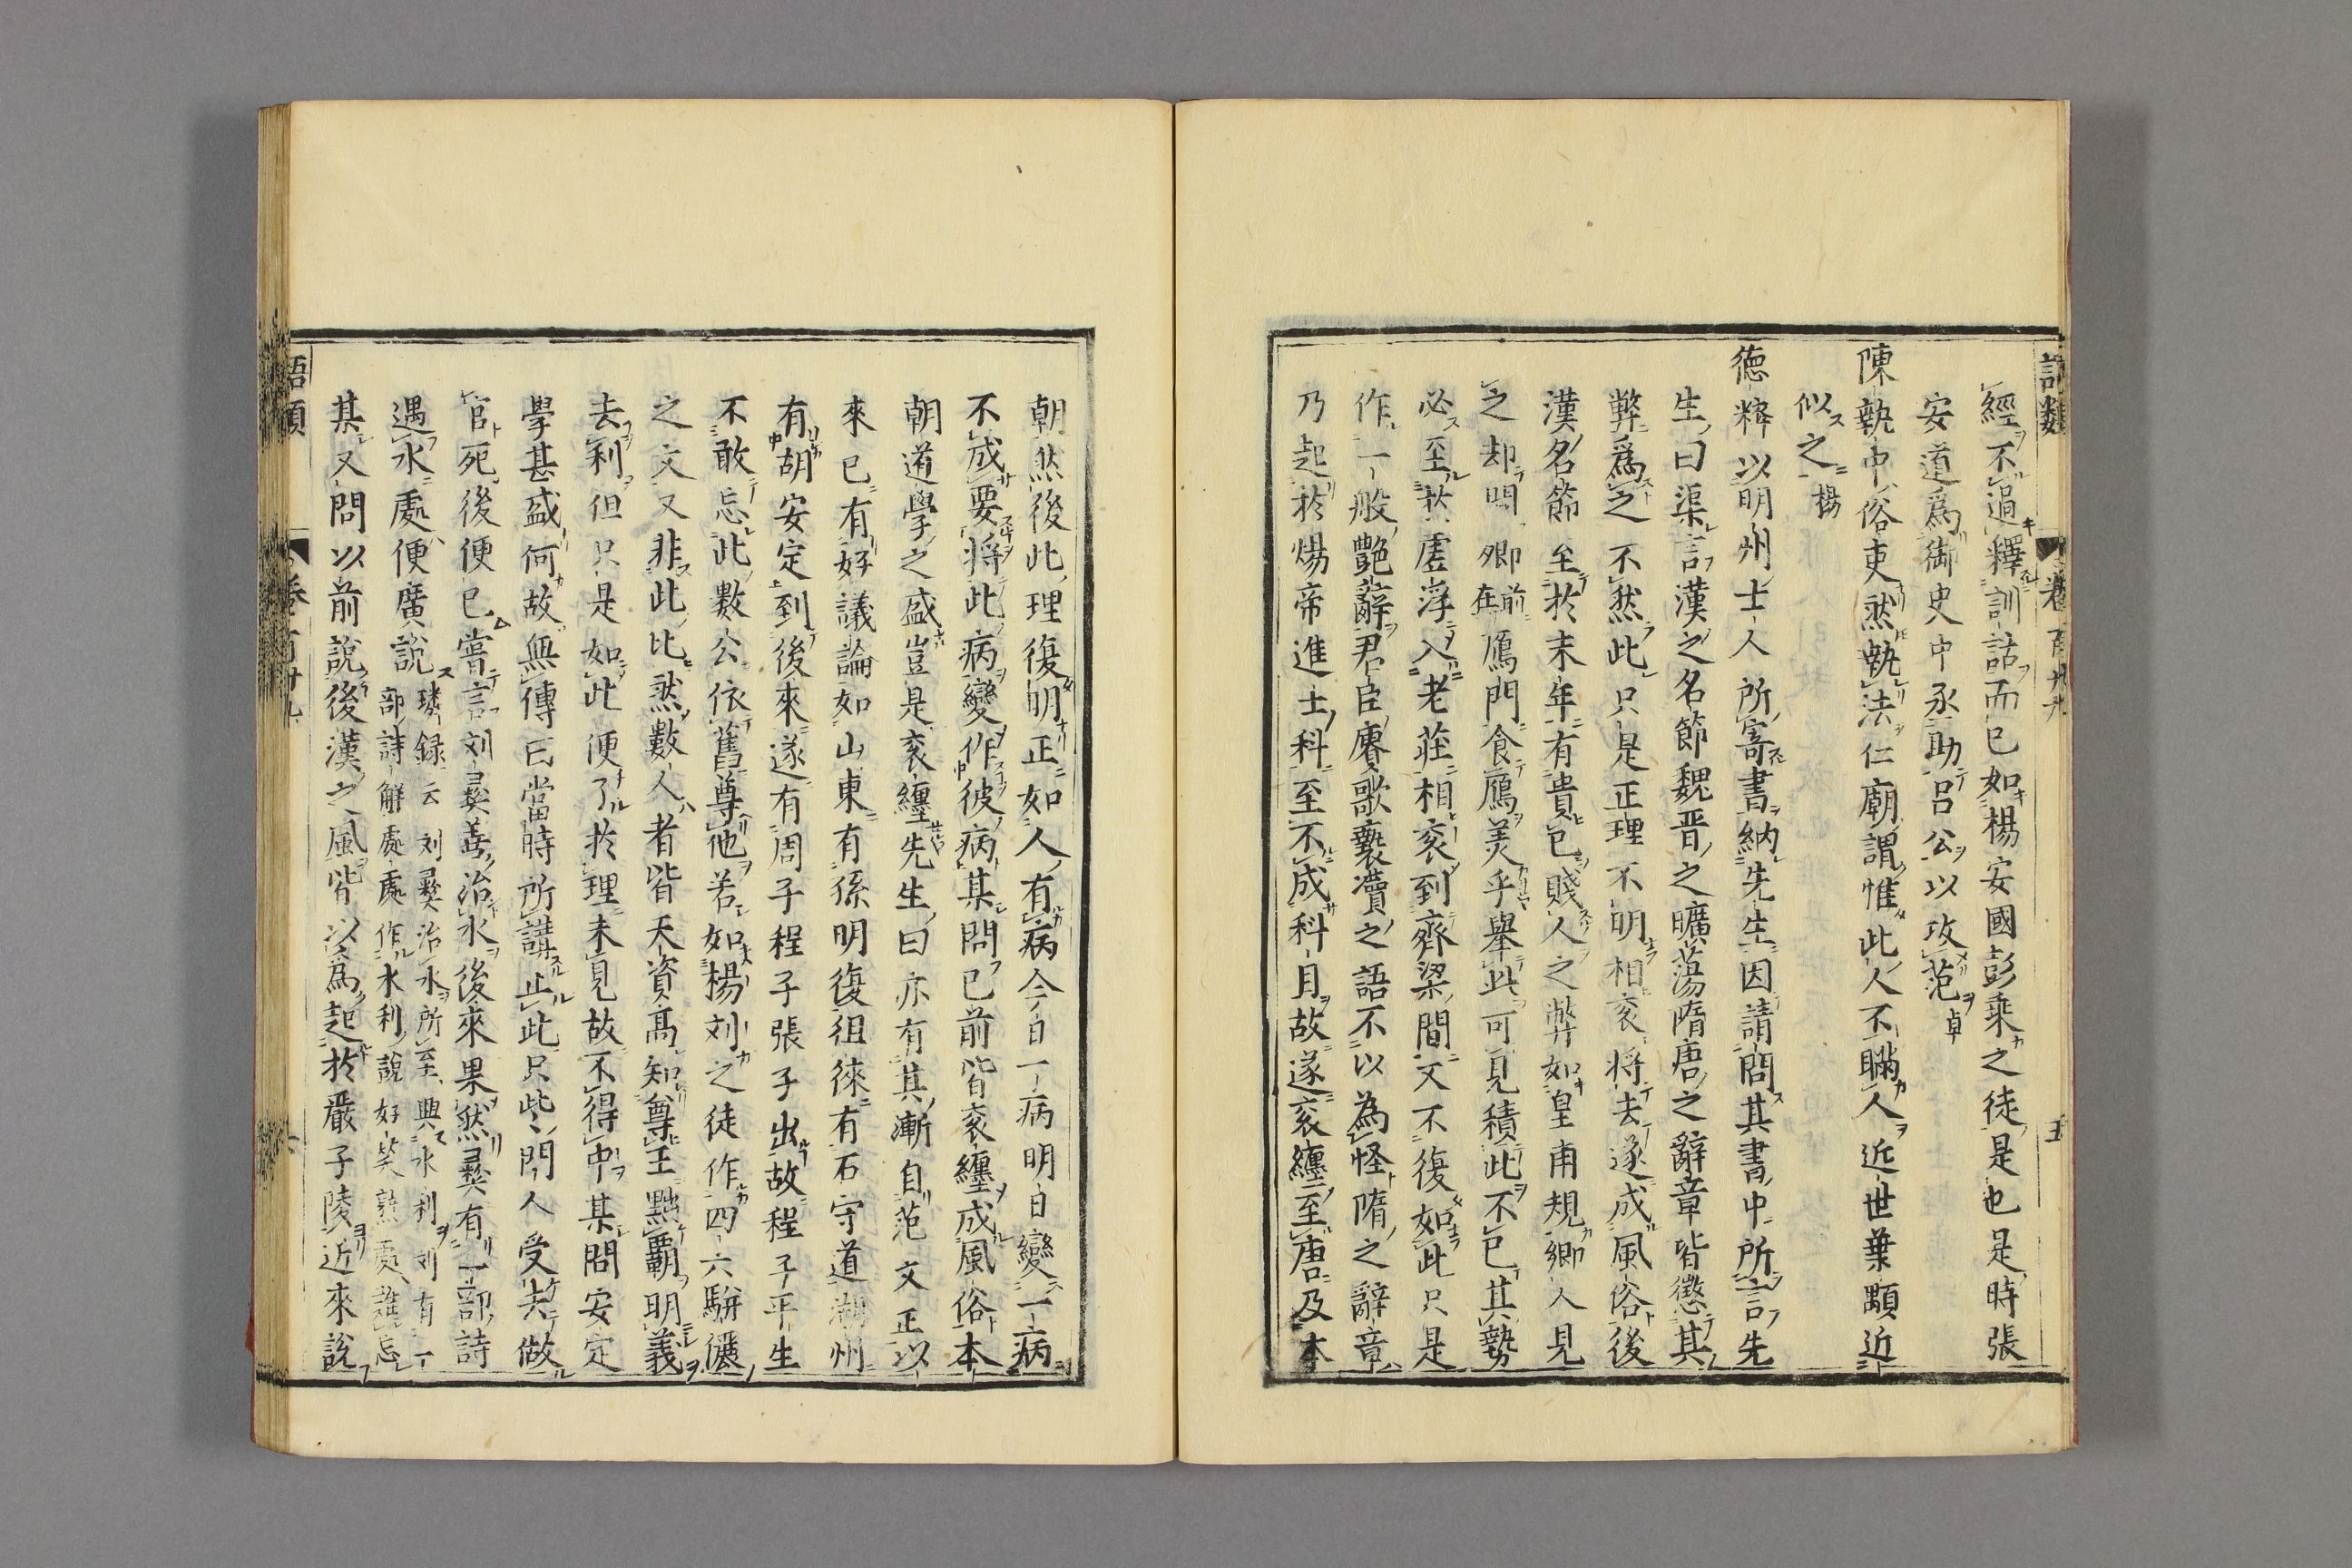 經不過釋訓詁而已如楊安國彭乘之徒是也是時張
安道爲御史中丞助呂公以攻范卓
陳執中俗吏然執法仁廟謂惟此人不瞞人近世葉顒近
似之楊
德粹以明州士人所寄書納先生因請問其書中所言先
生曰渠言漢之名節魏晋之曠蕩隋唐之辭章皆懲其
弊爲之不然此只是正理不明相衮將去遂成風俗後
漢名節至於末年有貴已賤人之弊如皇甫規鄉人見
之却問卿在前鴈門食鴈美乎舉此可見積此不已其勢
必至於虗浮入老莊相衮到齊梁間又不復如此只是
作一般艷辭君臣賡歌褻瀆之語不以為怪隋之辭章
乃起於煬帝進士科至不成科目故遂衮纏至唐及本
朝然後此理復明正如人有病今日一病明日變一病
不成要將此病變作彼病某問已前皆衮纏成風俗本
朝道學之盛豈是衮纏先生曰亦有其漸自范文正以
來已有好議論如山東有孫明復徂徠有石守道湖州
有胡安定到後來遂有周子程子張子出故程子平生
不敢忘此數公依舊尊他若如楊刘之徒作四六駢儷
之文又非此比然數人者皆天資高知尊王黜覇明義
去利但只是如此便了於理未見故不得中某問安定
學甚盛何故無傳曰當時所講止此只些門人受去做
官死後便已嘗言刘彝善治水後來果然彝有一部詩
遇水處便廣說璘録云刘彝治水所至興水利刘有一
部詩解處處作水利說好笑熟處難忘
某又問以前說後漢之風皆以為起於嚴子陵近來說